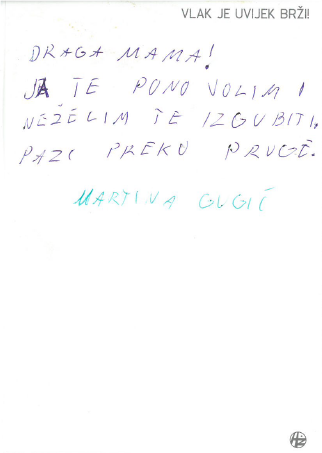 VLAK JE UVIJEK BRŽI!
DRAGA MAMA!
JA TE PONO VOLIM I
NEŽELIM TE IZGUBITI,
PAZI PREKO PRUGE.
MARTINA GUGIĆ
HŽ